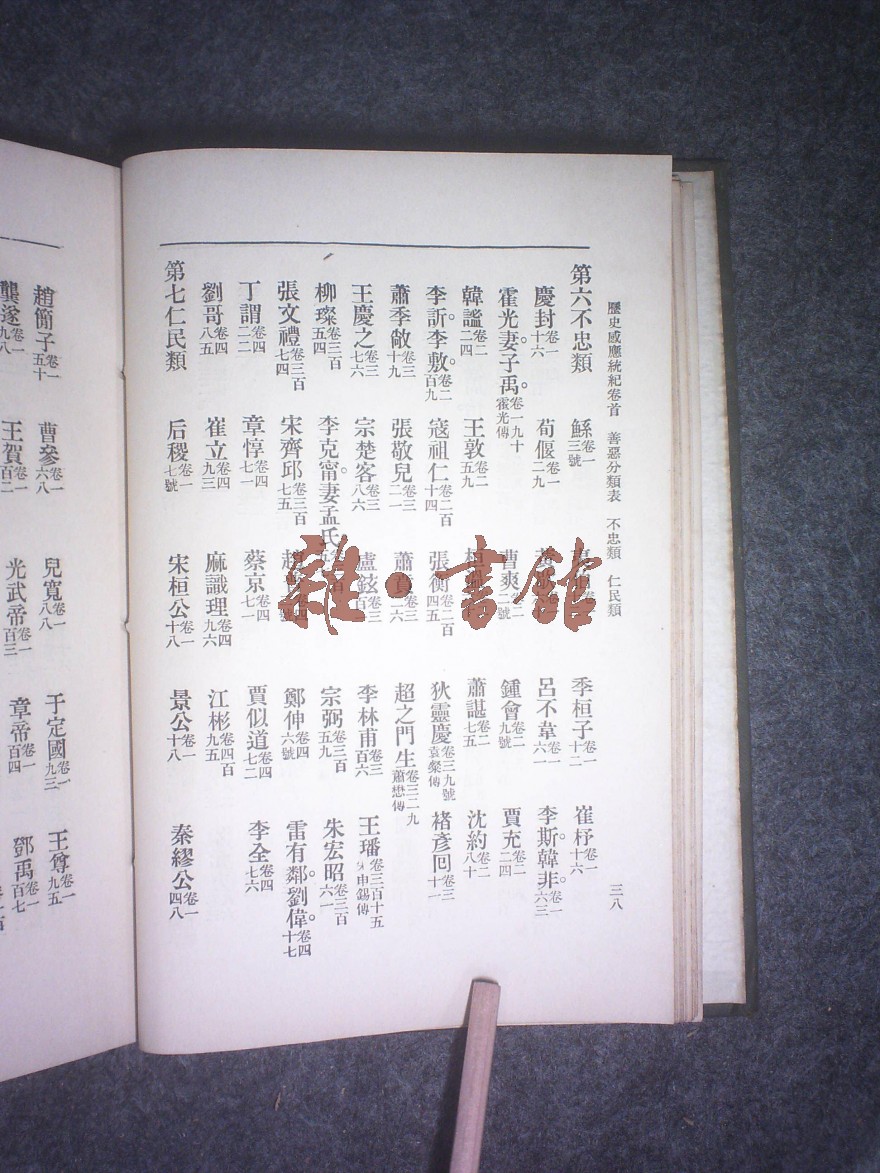 歷史感應統紀卷首 善惡分類表 不忠類 仁民類 三八
第六不忠類 鯀卷一三號 季桓子卷一十二 崔杼卷一十六
慶封卷一十六 荀偃卷一二九 呂不韋卷一六一 李斯。韓非。卷一六三
霍光妻子禹。卷一九十霍光傳 曹爽卷二二號 鍾會卷二九號 賈充卷二二四
韓謐卷二二四 王敦卷二五九 蕭諶卷二七五 沈約卷二八十
李訢。李敷。卷二百九 寇祖仁卷二百十四 張衡卷二百四五 狄靈慶卷三九號袁粲傳 褚彥回卷三十一
蕭季敞卷三十九 張敬兒卷三二一 蕭賁卷三二六 超之門生卷三二九蕭懋傳
王慶之卷三七六 宗楚客卷三八六 盧鉉卷三百三 李林甫卷三百六 王璠卷三百十五宋申錫傳
柳璨卷三百五四 李克甯。妻孟氏 宗弼卷三百五九 朱宏昭卷三百六一
張文禮卷三百七四 宋齊邱卷三百七五 鄭仲卷四六號 雷有鄰。劉偉。卷四十七
丁謂卷四二二 章惇卷四七一 蔡京卷四七一 賈似道卷四七二 李全卷四七六
劉哥卷四八五 崔立卷四九三 麻識理卷四九六 江彬卷四百九五
第七仁民類 后稷卷一七號 宋桓公卷一十八 景公卷一十八 秦繆公卷一四八
趙簡子卷一五十 曹參卷一六八 兒寬卷一八八 于定國卷一九三 王尊卷一九五
龔遂卷一九八 王賀卷一百二 光武帝卷一百三 章帝卷一百四 鄧禹卷一百七
雜·書館